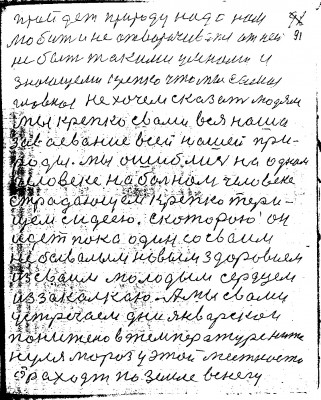 пройдет природу надо нам 91
любить и не отворачиватся от ней
не быть такими умными и
знающеми крепко что мы самое
главное не хочем сказать людям
мы крепко с вами вся наша
завевание всей нашей при-
роды. мы ошиблись на одном
человеке на болном человеке
страдающем крепко терп-
щем с идеею, с которою он
идет пока один со своим
небывалым новым здоровием
и своим молодым сердцем
и з закалкою. А мы с вами
встречаем дни январской
понижено в температуре ниже
нуля мороз у этой местности
ходят по земле в снегу